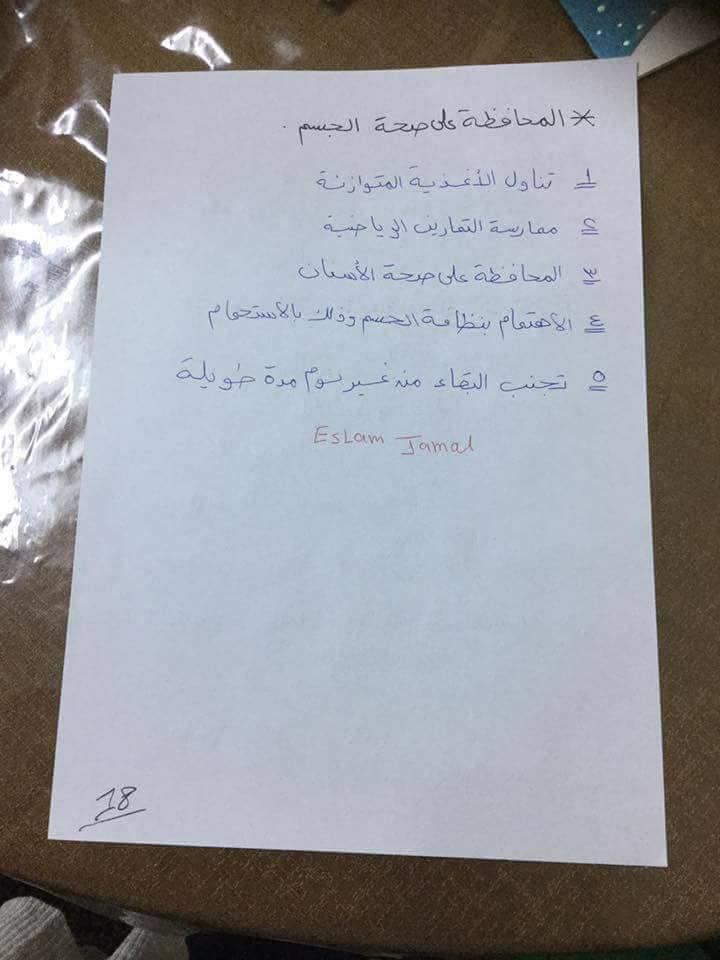 * المحافظة على صحة الجسم .
١ تناول الأغذية المتوازنة
٢ ممارسة التمارين الرياضية
٣ المحافظة على صحة الأسنان
٤ الاهتمام بنظافة الجسم وذلك بالاستحمام
٥ تجنب البقاء من غير نوم مدة طويلة
Eslam Jamal
18